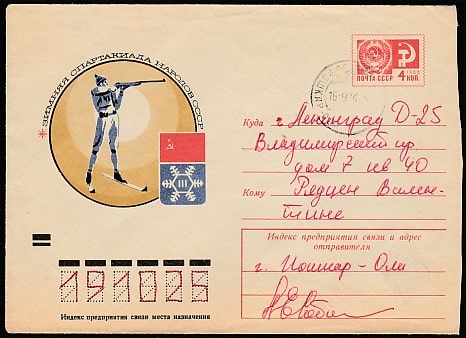 ЗИМНЯЯ СПАРТАКИАДА НАРОДОВ СССР
III
ПОЧТА СССР
1966
4 КОП.
Куда г. Ленинград Д-25
Владимирский пр
дом 7 кв 40
Кому
тине
Индекс предприятия связи и адрес
отправителя
г. Йошкар-Ола
191025
Индекс предприятия связи места назначения